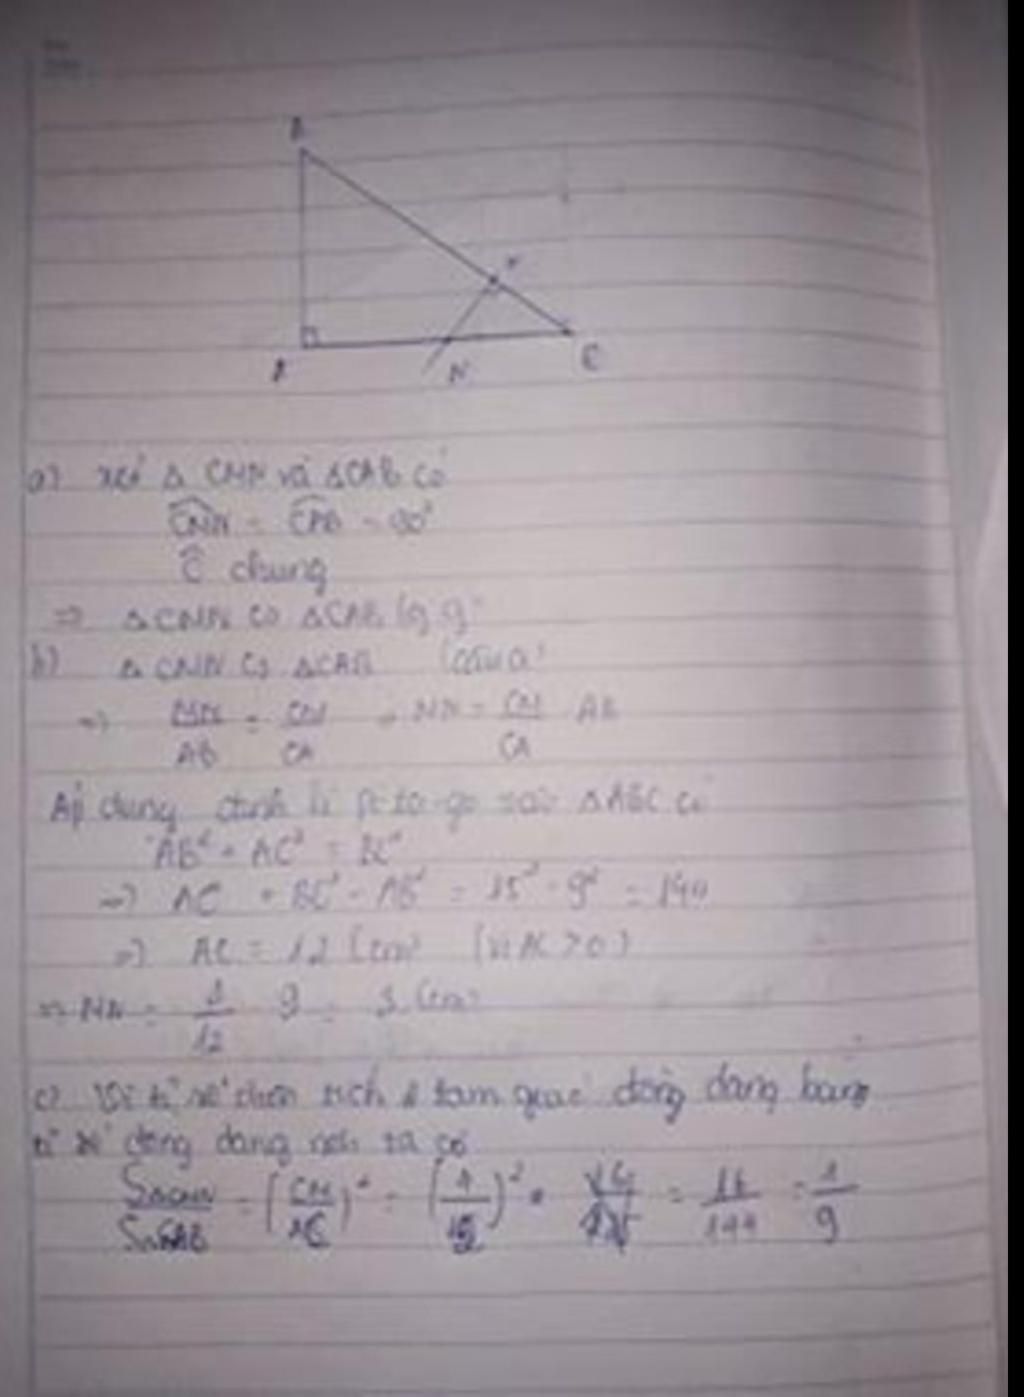 B
A
N
C
a) xét Δ CMN và ΔCAB có
CMN = CAB = 90°
Ĉ chung
=> ΔCMN ∽ ΔCAB (g.g)
b) ΔCMN ∽ ΔCAB (câu a)
=> MN/AB = CM/CA => MN = CM/CA . AB
Áp dụng định lí pi-ta-go vào ΔABC có
AB² + AC² = BC²
=> AC² = BC² - AB² = 15² - 9² = 144
=> AC = 12 (cm) (vì AC > 0)
=> MN = /12 . 9 = 3 (cm)
c) Vì tỉ số diện tích 2 tam giác đồng dạng bằng
tỉ số đồng dạng nên ta có
SΔCMN/SΔCAB = (CM/AC)² = (4/12)² = 16/144 = 1/9